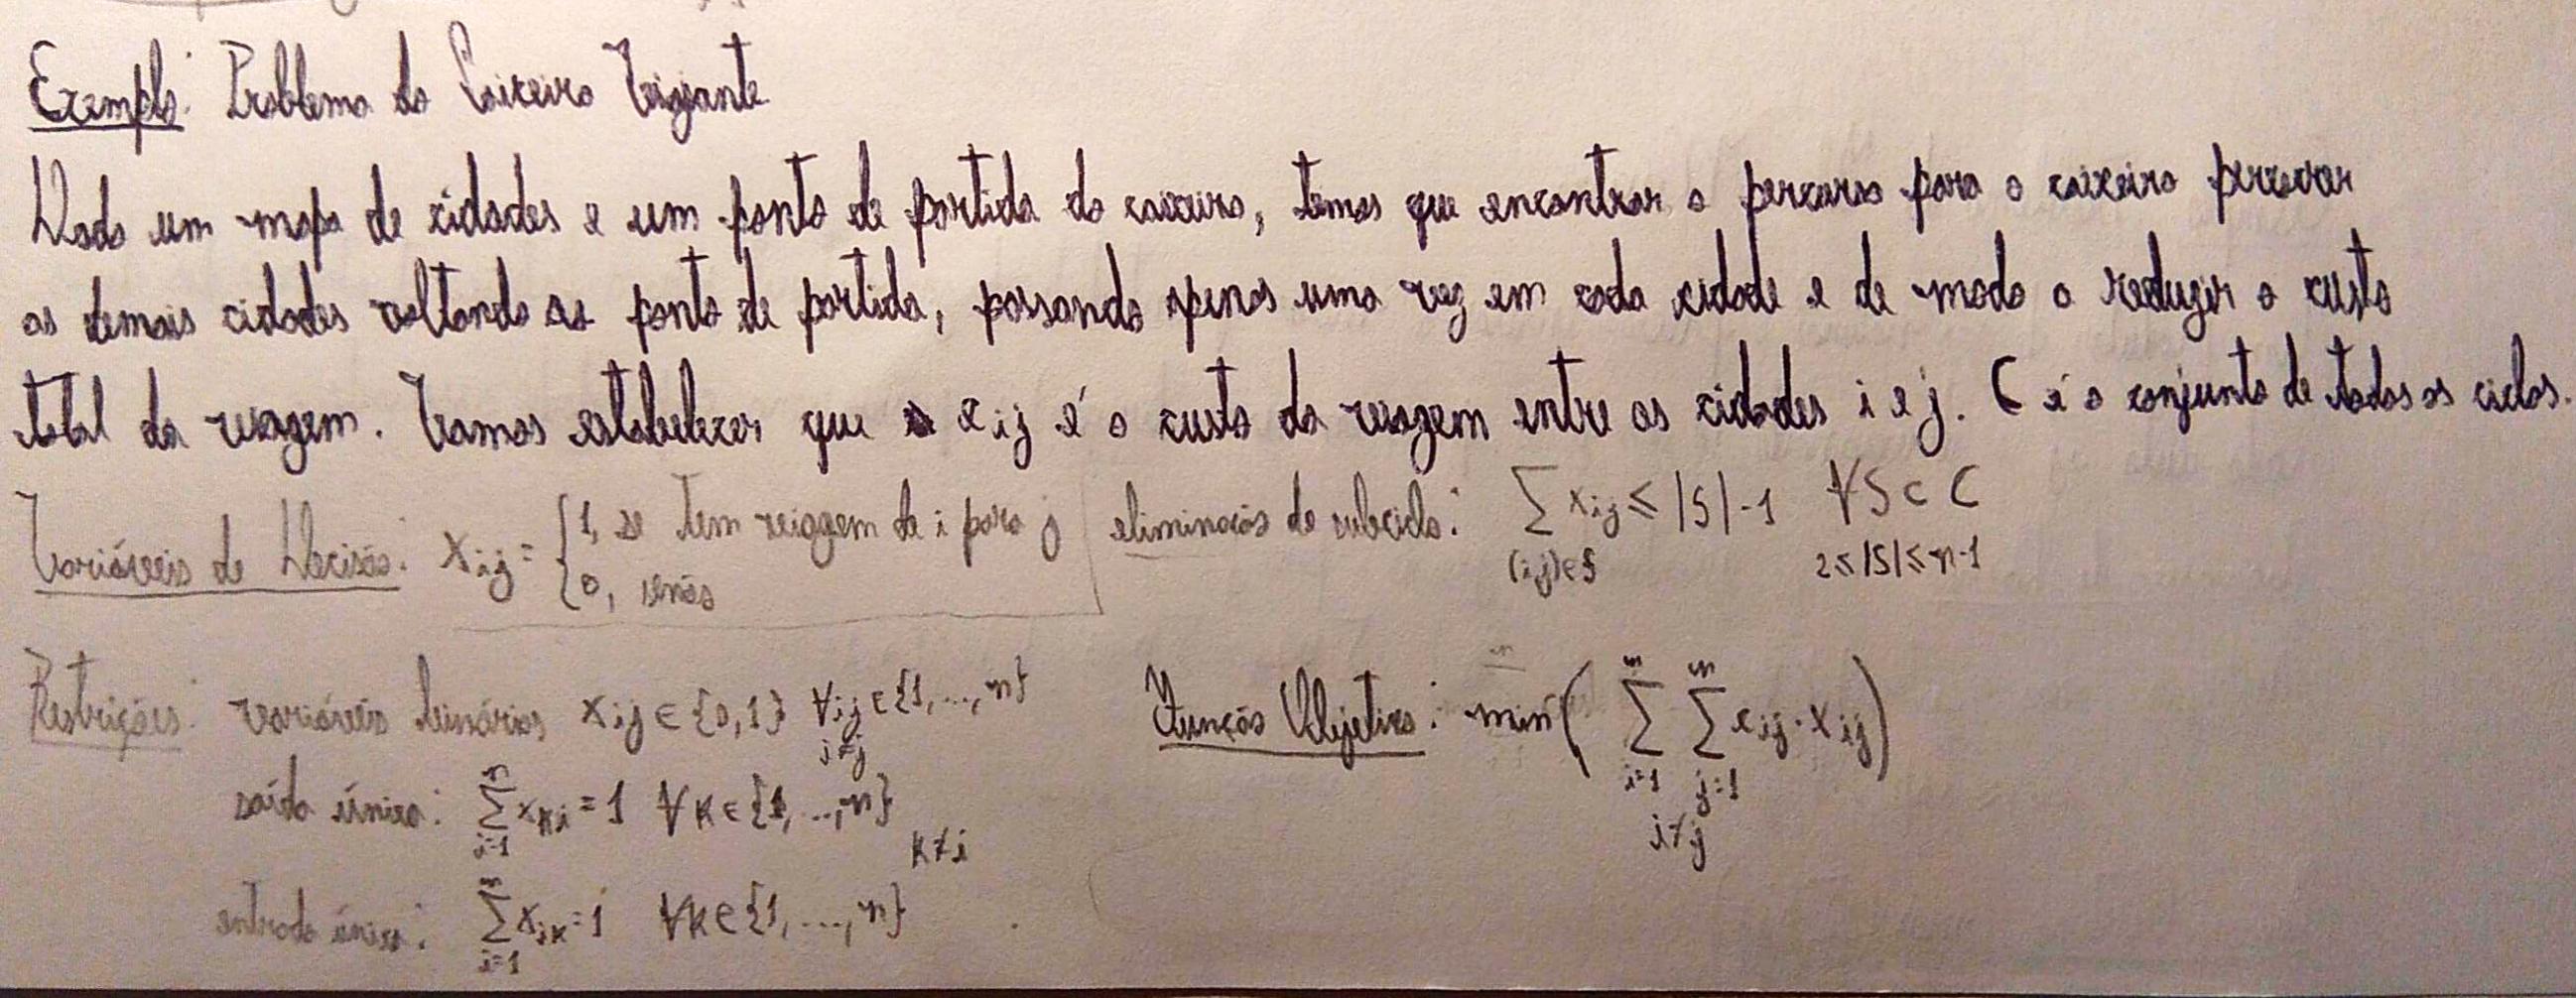 Exemplo: Problema do Caixeiro Viajante
Dado um mapa de cidades e um ponto de partida do caixeiro, temos que encontrar o percurso para o caixeiro percorrer
as demais cidades voltando ao ponto de partida, passando apenas uma vez em cada cidade e de modo a reduzir o custo
total da viagem. Vamos estabelecer que c_ij é o custo da viagem entre as cidades i e j. C é o conjunto de todos os ciclos.
Variáveis de Decisão: x_ij = { 1, se tem viagem de i para j
{ 0, senão
eliminação de subciclo: ∑ x_ij ≤ |S|-1 ∀S ⊂ C
(i,j)∈S 2≤|S|≤n-1
Restrições: variáveis binárias x_ij ∈ {0,1} ∀i,j ∈ {1,...,n}
i≠j
saída única: ∑_{i=1}^{n} x_ki = 1 ∀k ∈ {1,...,n}
k≠i
entrada única: ∑_{i=1}^{n} x_ik = 1 ∀k ∈ {1,...,n}
Função Objetivo: min( ∑_{i=1}^{n} ∑_{j=1}^{n} c_ij · x_ij )
i≠j